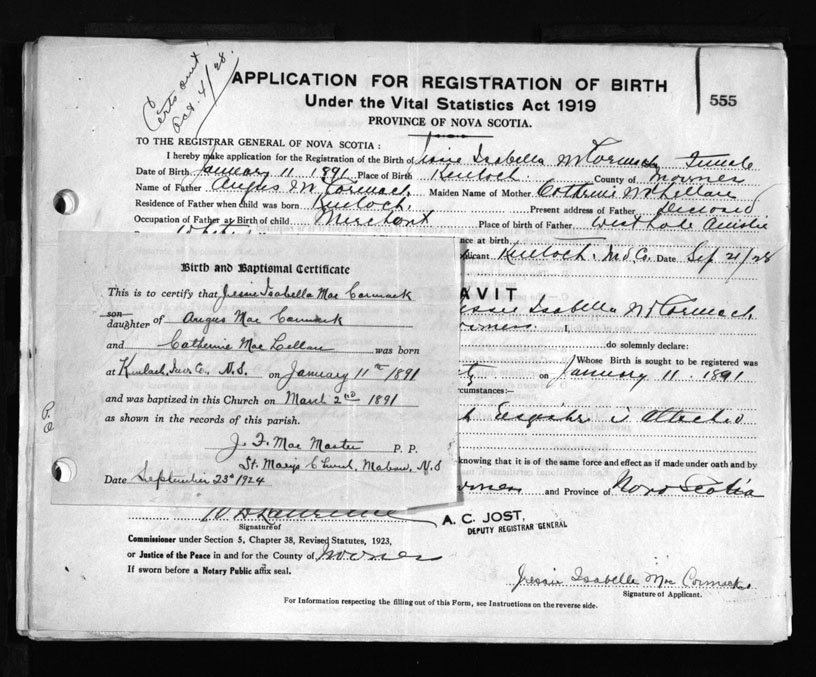 Certs out
Oct. 4/28.
APPLICATION FOR REGISTRATION OF BIRTH
Under the Vital Statistics Act 1919
PROVINCE OF NOVA SCOTIA.
555
TO THE REGISTRAR GENERAL OF NOVA SCOTIA:
I hereby make application for the Registration of the Birth of Jessie Isabella McCormack Female
Date of Birth January 11 1891 Place of Birth Kinloch. County of Inverness
Name of Father Angus McCormack Maiden Name of Mother Catherine McLellan
Residence of Father when child was born Kinloch. Present address of Father Deceased
Occupation of Father at Birth of child Merchant Place of birth of Father West Lake Ainslie
nce at birth
plicant Kinloch. Inv. Co. Date Sep 21/28
Birth and Baptismal Certificate
This is to certify that Jessie Isabella Mac Cormack
son
daughter of Angus Mac Cormack
and Catherine Mac Lellan was born
at Kinloch, Inv. Co. N.S. on January 11th 1891
and was baptized in this Church on March 2nd 1891
as shown in the records of this parish.
J. F. Mac Master P. P.
St. Marys Church, Mabou, N.S
Date September 23d 1924
AVIT
Jessie Isabella McCormack
Inverness I,
do solemnly declare:
Whose Birth is sought to be registered was
on January 11. 1891
cumstances:—
is attached
knowing that it is of the same force and effect as if made under oath and by
Inverness and Province of Nova Scotia
A. C. JOST,
DEPUTY REGISTRAR GENERAL
Signature of
Commissioner under Section 5, Chapter 38, Revised Statutes, 1923,
or Justice of the Peace in and for the County of Inverness
If sworn before a Notary Public affix seal.
Jessie Isabella Mac Cormack.
Signature of Applicant.
For Information respecting the filling out of this Form, see Instructions on the reverse side.